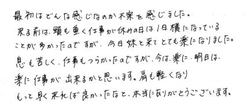 最初はどんな感じなのか不安を感じました。
来る前は、頭も重く仕事が休みの日は1日横になっている
ことが多かったのですが、今日体も軽くとても楽になりました。
息も苦しく、仕事もつらかったのですが、今は、楽に、明日は、
楽に仕事が出来るかと思います。肩も軽くなり
もっと早く来れば良かったなと、本当にありがとうございます。